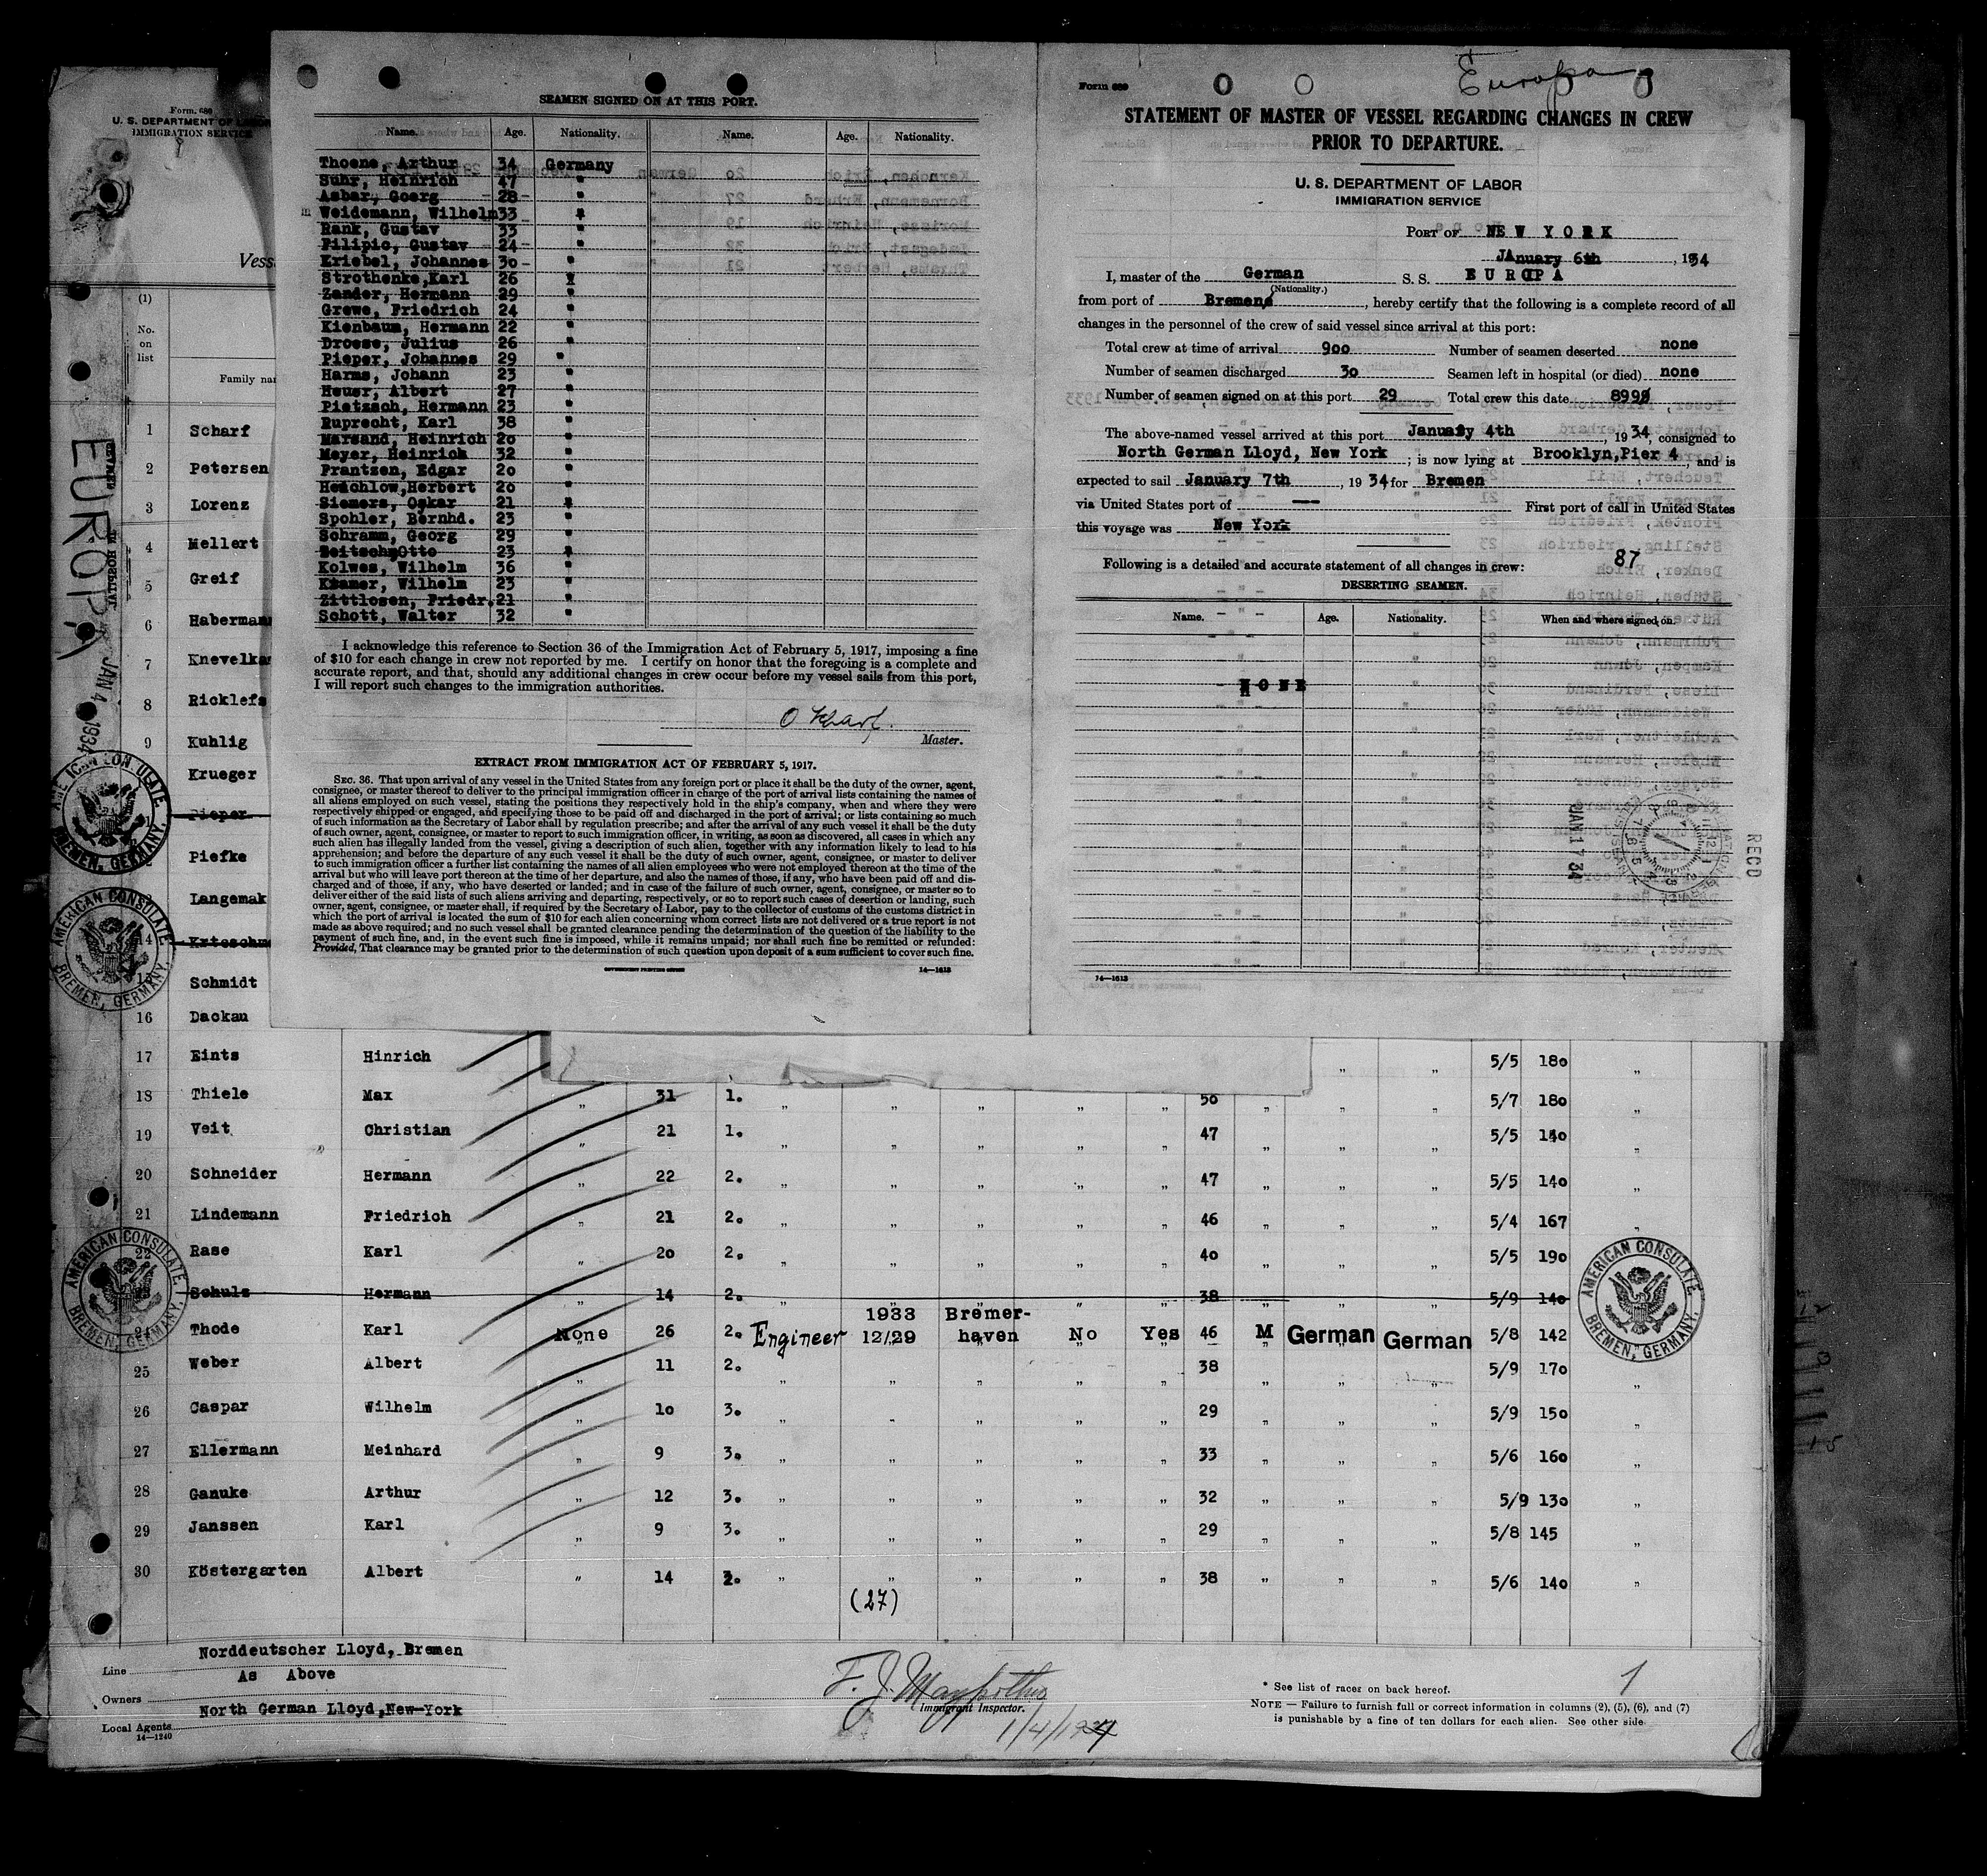 SEAMEN SIGNED ON AT THIS PORT.
Name. Age. Nationality. Name. Age. Nationality.
Thoene, Arthur 34 Germany
Suhr, Heinrich 47 "
Asbar, Goerg 28 "
Weidemann, Wilhelm 33 "
Rank, Gustav 33 "
Filipic, Gustav 24 "
Kriebel, Johannes 30 "
Strothenke, Karl 26 "
Zander, Hermann 29 "
Grewe, Friedrich 24 "
Kienbaum, Hermann 22 "
Droese, Julius 26 "
Pieper, Johannes 29 "
Harms, Johann 23 "
Heuer, Albert 27 "
Pietzsch, Hermann 23 "
Ruprecht, Karl 38 "
Marsand, Heinrich 20 "
Meyer, Heinrich 32 "
Frantzen, Edgar 20 "
Herbert 20 "
Siemers, Oskar 21 "
Spohler, Bernhd. 23 "
Schramm, Georg 29 "
Otto 23 "
Kolwes, Wilhelm 36 "
Wilhelm 23 "
Zittlosen, Friedr. 21 "
Schott, Walter 32 "
I acknowledge this reference to Section 36 of the Immigration Act of February 5, 1917, imposing a fine
of $10 for each change in crew not reported by me. I certify on honor that the foregoing is a complete and
accurate report, and that, should any additional changes in crew occur before my vessel sails from this port,
I will report such changes to the immigration authorities.
Master.
EXTRACT FROM IMMIGRATION ACT OF FEBRUARY 5, 1917.
SEC. 36. That upon arrival of any vessel in the United States from any foreign port or place it shall be the duty of the owner, agent,
consignee, or master thereof to deliver to the principal immigration officer in charge of the port of arrival lists containing the names of
all aliens employed on such vessel, stating the positions they respectively hold in the ship's company, when and where they were
respectively shipped or engaged, and specifying those to be paid off and discharged in the port of arrival; or lists containing so much
of such information as the Secretary of Labor shall by regulation prescribe; and after the arrival of any such vessel it shall be the duty
of such owner, agent, consignee, or master to report to such immigration officer, in writing, as soon as discovered, all cases in which any
such alien has illegally landed from the vessel, giving a description of such alien, together with any information likely to lead to his
apprehension; and before the departure of any such vessel it shall be the duty of such owner, agent, consignee, or master to deliver
to such immigration officer a further list containing the names of all alien employees who were not employed thereon at the time of the
arrival but who will leave port thereon at the time of her departure, and also the names of those, if any, who have been paid off and dis-
charged and of those, if any, who have deserted or landed; and in case of the failure of such owner, agent, consignee, or master so to
deliver either of the said lists of such aliens arriving and departing, respectively, or so to report such cases of desertion or landing, such
owner, agent, consignee, or master shall, if required by the Secretary of Labor, pay to the collector of customs of the customs district in
which the port of arrival is located the sum of $10 for each alien concerning whom correct lists are not delivered or a true report is not
made as above required; and no such vessel shall be granted clearance pending the determination of the question of the liability to the
payment of such fine, and, in the event such fine is imposed, while it remains unpaid; nor shall such fine be remitted or refunded:
Provided, That clearance may be granted prior to the determination of such question upon deposit of a sum sufficient to cover such fine.
GOVERNMENT PRINTING OFFICE 14—1613
Europa
Form 689
STATEMENT OF MASTER OF VESSEL REGARDING CHANGES IN CREW
PRIOR TO DEPARTURE.
U. S. DEPARTMENT OF LABOR
IMMIGRATION SERVICE
PORT OF NEW YORK
JAnuary 6th, 1934
I, master of the German S. S. EUROPA
(Nationality.)
from port of Bremen, hereby certify that the following is a complete record of all
changes in the personnel of the crew of said vessel since arrival at this port:
Total crew at time of arrival 900 Number of seamen deserted none
Number of seamen discharged 30 Seamen left in hospital (or died) none
Number of seamen signed on at this port 29 Total crew this date 899
The above-named vessel arrived at this port January 4th, 1934, consigned to
North German Lloyd, New York; is now lying at Brooklyn, Pier 4, and is
expected to sail January 7th, 1934 for Bremen
via United States port of --- First port of call in United States
this voyage was New York
Following is a detailed and accurate statement of all changes in crew: 87
DESERTING SEAMEN.
Name. Age. Nationality. When and where signed on.
NONE
14—1613
JAN 17 34
RECD
Form. 680
U. S. DEPARTMENT OF LABOR
IMMIGRATION SERVICE
Vess
(1)
No.
on
list
Family nam
EUROPA
JAN 4 1934
1 Scharf
2 Petersen
3 Lorenz
4 Mellert
5 Greif
6 Habermann
7 Knevelka
8 Ricklefs
9 Kuhlig
Krueger
Pieper
Piefke
Langemak
14 Krteschm
15 Schmidt
16 Dackau
17 Eints Hinrich 5/5 180
18 Thiele Max " 31 1. " " " " " 50 " " " 5/7 180 "
19 Veit Christian " 21 1. " " " " " 47 " " " 5/5 140 "
20 Schneider Hermann " 22 2. " " " " " 47 " " " 5/5 140 "
21 Lindemann Friedrich " 21 2. " " " " " 46 " " " 5/4 167 "
22 Rase Karl " 20 2. " " " " " 40 " " " 5/5 190 "
Schulz Hermann " 14 2. " " " " " 38 " " " 5/9 140
1933 Bremer-
24 Thode Karl None 26 2. Engineer 12/29 haven No Yes 46 M German German 5/8 142
25 Weber Albert " 11 2. " " " " " 38 " " " 5/9 170 "
26 Caspar Wilhelm " 10 3. " " " " " 29 " " " 5/9 150 "
27 Ellermann Meinhard " 9 3. " " " " " 33 " " " 5/6 160 "
28 Ganuke Arthur " 12 3. " " " " " 32 " " " 5/9 130 "
29 Janssen Karl " 9 3. " " " " " 29 " " " 5/8 145 "
30 Köstergarten Albert " 14 3. " " " " " 38 " " " 5/6 140 "
(27)
AMERICAN CONSULATE
BREMEN, GERMANY.
AMERICAN CONSULATE
BREMEN, GERMANY.
AMERICAN CONSULATE
BREMEN, GERMANY.
AMERICAN CONSULATE
BREMEN, GERMANY.
Line Norddeutscher Lloyd, Bremen
Owners As Above
Local Agents North German Lloyd, New-York
14—1240
F. J.
Immigrant Inspector.
1/4/1934
* See list of races on back hereof.
NOTE — Failure to furnish full or correct information in columns (2), (5), (6), and (7)
is punishable by a fine of ten dollars for each alien. See other side
1